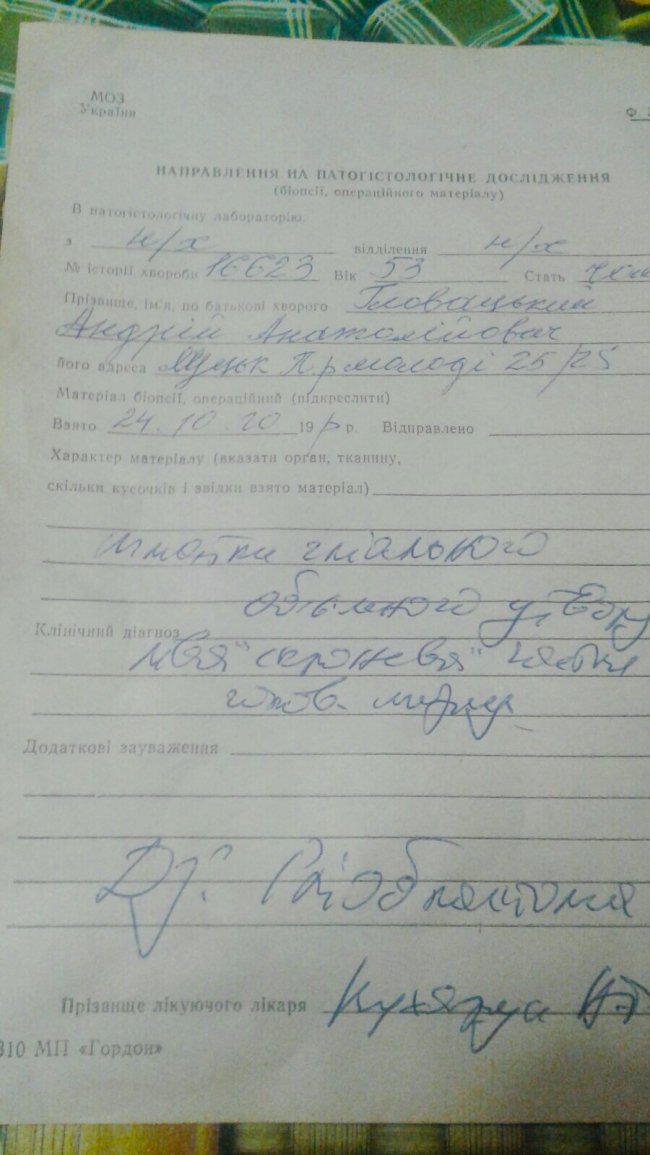 МОЗ
України
Ф.
НАПРАВЛЕННЯ НА ПАТОГІСТОЛОГІЧНЕ ДОСЛІДЖЕННЯ
(біопсії, операційного матеріалу)
В патогістологічну лабораторію.
з н/х відділення н/х
№ історії хвороби 16623 Вік 53 Стать чол
Прізвище, ім'я, по батькові хворого Гловацький
Андрій Анатолійович
його адреса Луцьк Пр молоді 25/25
Матеріал біопсії, операційний (підкреслити)
Взято 24.10.20 19 р р. Відправлено
Характер матеріалу (вказати орган, тканину,
скільки кусочків і звідки взято матеріал)
шматки гліального
об'ємного утвору
Клінічний діагноз
ліва скронева частка
голов. мозку
Додаткові зауваження
Dz: Гліобластома
Прізвище лікуючого лікаря
310 МП «Гордон»